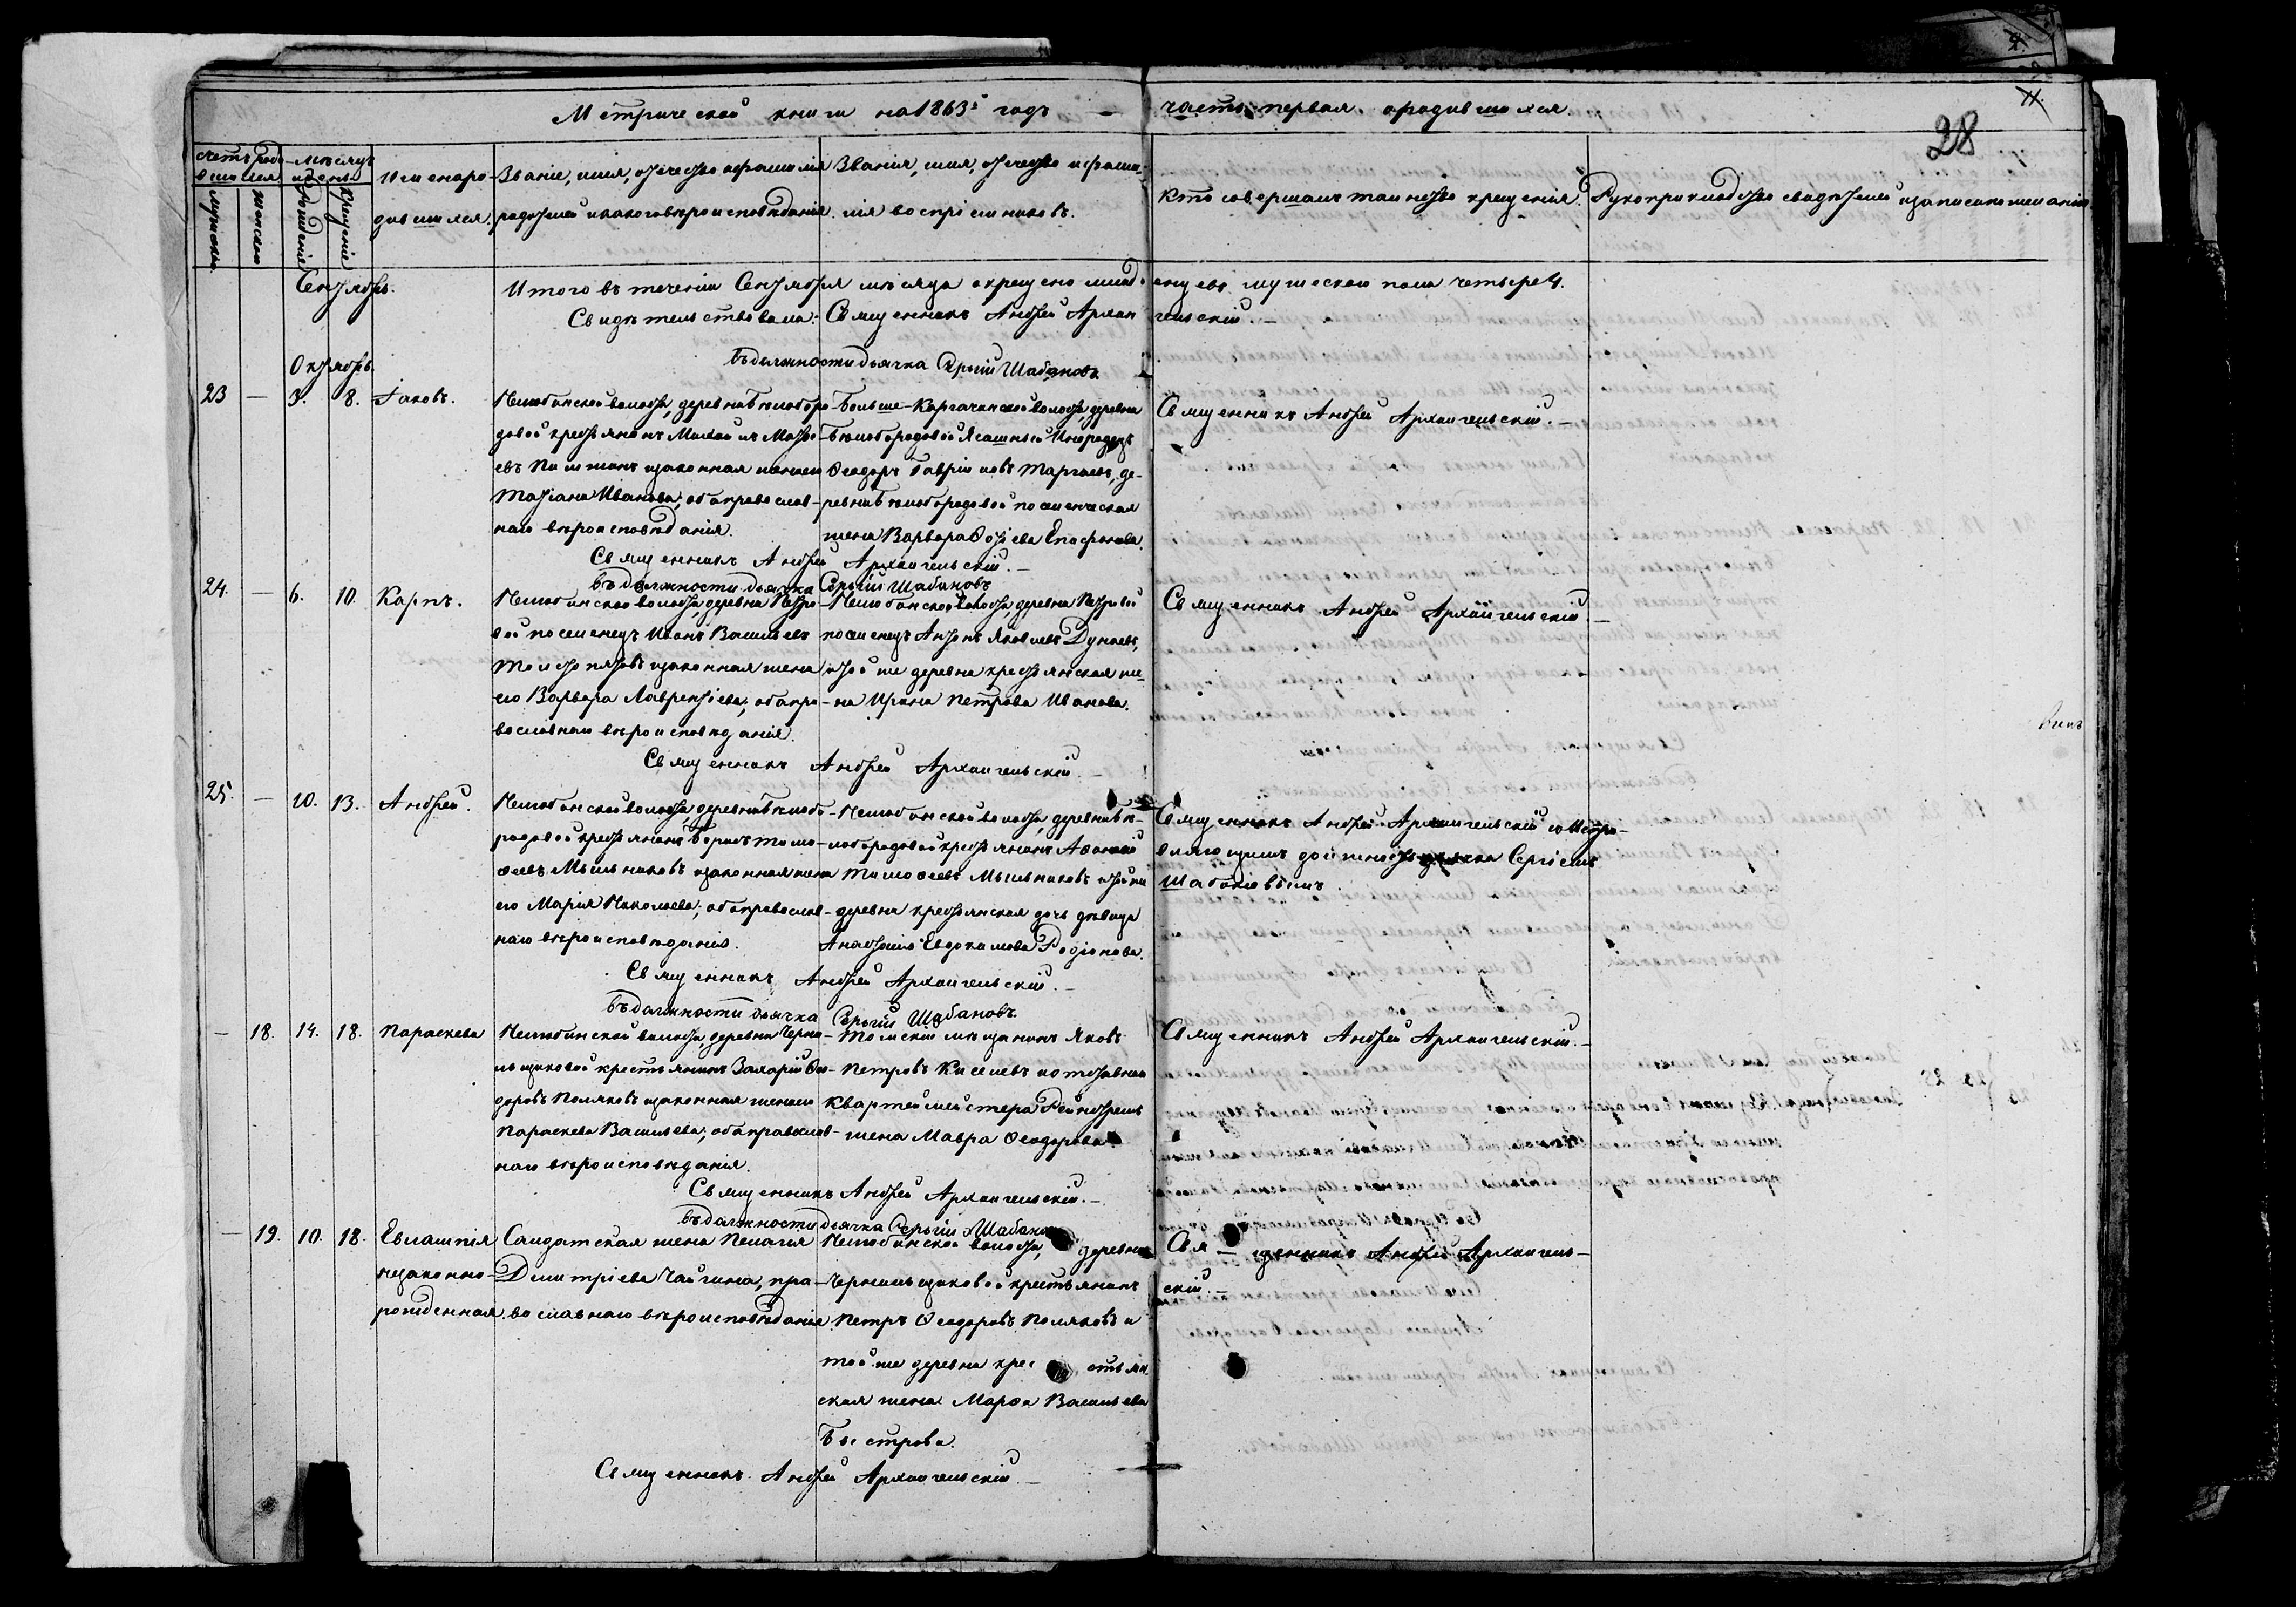 Метрической книги на 1863й годъ — часть первая о родившихся.
28
Счетъ родившихся.
Мужеска.
Женска.
Мѣсяцъ и день.
Рожденія.
Крещенія.
Имена родившихся.
Званіе, имя, отчество и фамилія родителей и какого вѣроисповѣданія.
Званія, имя, отчество и фамилія воспріемниковъ.
Кто совершалъ таинство крещенія.
Рукоприкладство свидѣтелей записи по желанію.
Сентябрь.
Итого въ теченіи Сентября мѣсяца окрещено младенцевъ мужеска пола четыре 4.
Свидѣтельствовали: Священникъ Андрей Архангельскій.—
Въ должности дьячка Сергій Шабановъ
Октябрь.
23 — 3. 8. Іаковъ.
Нелюбинской волости, деревни Бѣлобородовой крестьянинъ Михаилъ Матвѣевъ
и законная жена его
Татіана Иванова; оба православнаго вѣроисповѣданія.
Больше-Каргачинской волости деревни
Бѣлобородовой Ясашный Инородецъ
Ѳеодоръ Гавріиловъ Таргаевъ, деревни Бѣлобородовой поселенческая
жена Варвара
Священникъ Андрей Архангельскій.—
Священникъ Андрей Архангельскій.—
Въ должности дьячка Сергій Шабановъ
24. — 6. 10. Карпъ.
Нелюбинской волости, деревни Петровой поселенецъ Иванъ Васильевъ
Толстопятовъ и законная жена
его Варвара Лаврентіева; оба православнаго вѣроисповѣданія.
Нелюбинской волости, деревни Петровой
поселенецъ Антонъ Яковлевъ Дунаевъ,
и той же деревни крестьянская жена Ирина Петрова Иванова.
Священникъ Андрей Архангельскій.—
Священникъ Андрей Архангельскій.—
25. — 10. 13. Андрей.
Нелюбинской волости, деревни Бѣлобородовой крестьянинъ Борисъ Тимоѳеевъ Мыльниковъ и законная жена
его Марія Николаева; оба православнаго вѣроисповѣданія.
Нелюбинской волости, деревни Бѣлобородовой крестьянинъ Аѳанасій
Тимоѳеевъ Мыльниковъ и той же
деревни крестьянская дочь дѣвица
Анастасія Евдокимова Родіонова.
Священникъ Андрей Архангельскій съ исправляющимъ должность дьячка Сергіемъ
Священникъ Андрей Архангельскій.—
Въ должности дьячка Сергій Шабановъ.
— 18. 14. 18. Параскева
Нелюбинской волости, деревни Чернильщиковой крестьянинъ Захарій Ѳеодоровъ Поляковъ и законная жена его
Параскева Васильева; оба православнаго вѣроисповѣданія.
Томскій мѣщанинъ Яковъ
Петровъ Киселевъ и отставнаго
Квартермейстера
жена Мавра Ѳеодорова
Священникъ Андрей Архангельскій.—
Священникъ Андрей Архангельскій.—
Въ должности дьячка Сергій Шабановъ
— 19. 10. 18. Евлампія
незаконнорожденная.
Солдатская жена Пелагія
Димитріева Чайгина, православнаго вѣроисповѣданія
Нелюбинской волости, деревни
Чернильщиковой крестьянинъ
Петръ Ѳеодоровъ Поляковъ и
той же деревни крестьянская жена Марѳа Васильева
Быстрова.
Священникъ Андрей Архангельскій.—
Священникъ Андрей Архангельскій.—